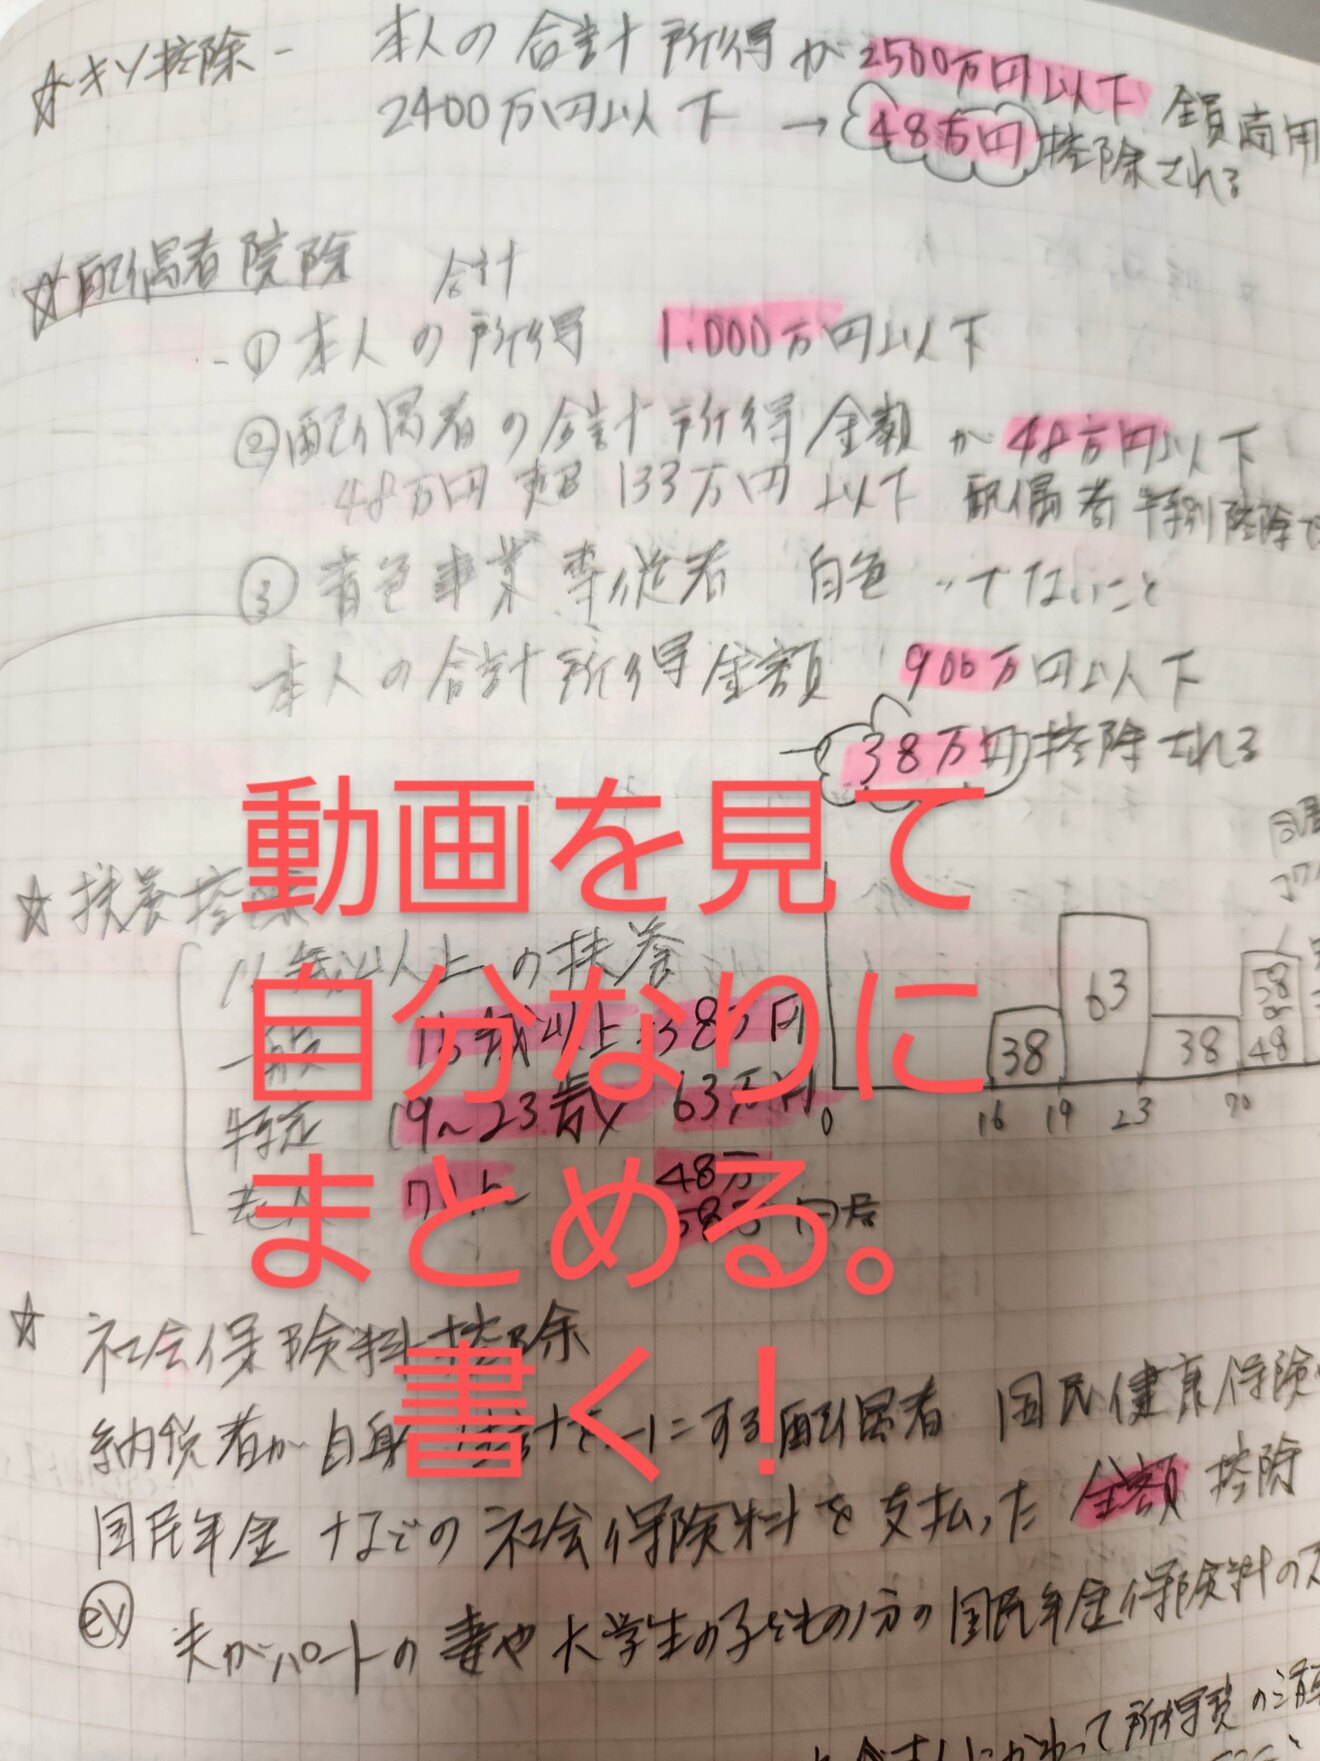 ☆キソ控除 - 本人の合計所得が2500万円以下 全員適用
2400万円以下 → 48万円控除される
☆配偶者控除
合計
①本人の所得 1.000万円以下
②配偶者の合計所得金額が48万円以下
48万円超 133万円以下 配偶者特別控除
③青色事業専従者 白色 〃でないこと
本人の合計所得金額 900万円以下
→38万円控除される
動画を見て
☆扶養控
以上の扶養
自分なりに
一般 16歳以上 38万円
特定 19~23歳 63万円
まとめる。
老人 48万
58万 同居
63
38 38 58
or
48
0 16 19 23 70
☆社会保険料控除
書く!
納税者が自身 にする配偶者 国民健康保険
国民年金などの社会保険料を支払った金額控除
ex 夫がパートの妻や大学生の子どもの分の国民年金保険料の